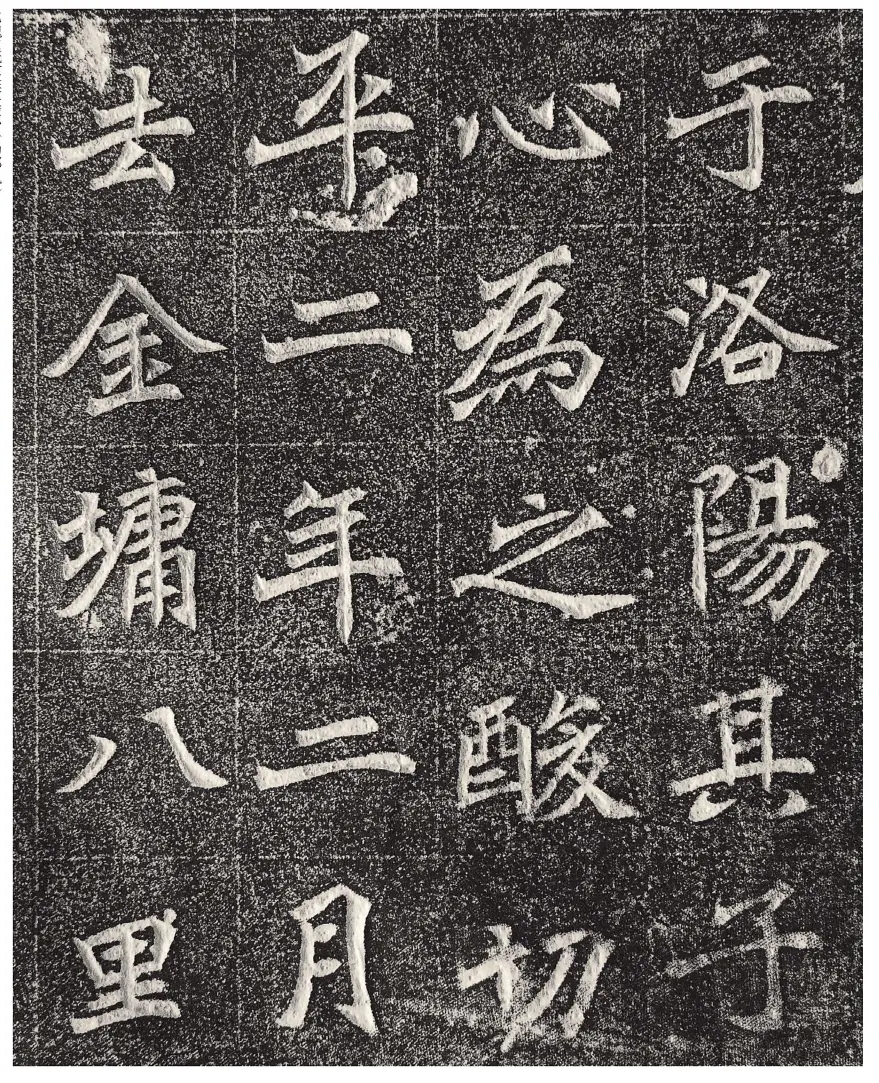 于洛陽其子
心為之酸切
平二年二月
去金墉八里